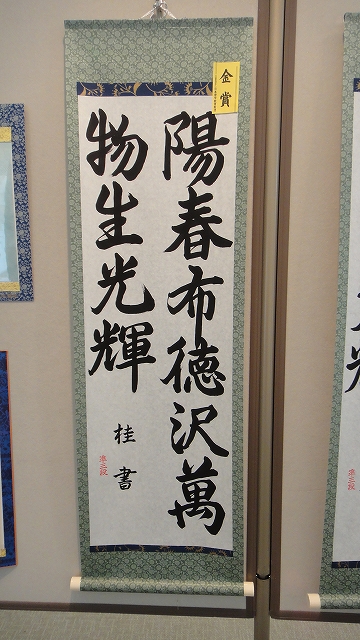 金賞
陽春布徳沢萬
物生光輝
桂書
準三段